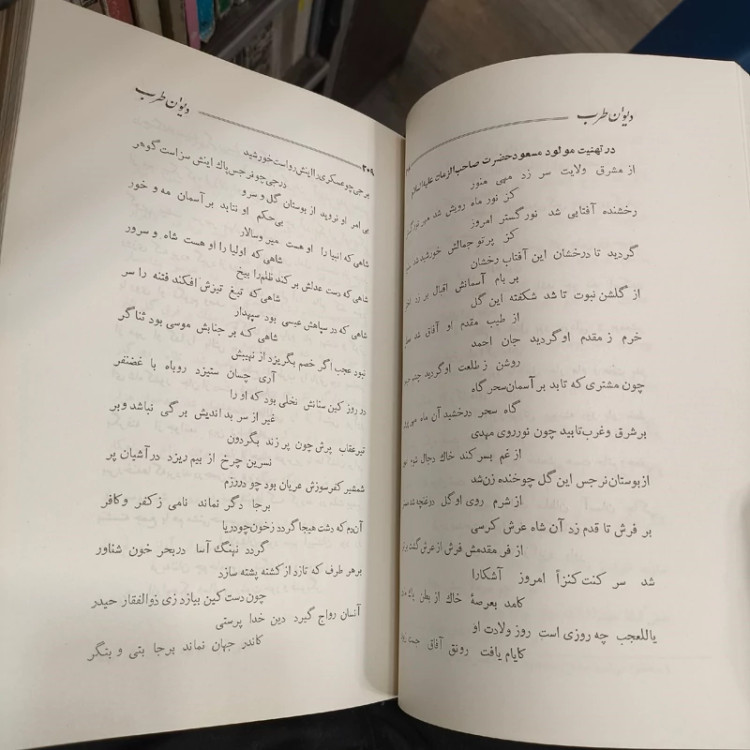 دیوان طرب
در تهنیت مولود مسعود حضرت صاحب الزمان علیه السلام
از مشرق ولایت سر زد مهی منور
کز نور ماه رویش شد
رخشنده آفتابی شد نورگستر امروز
کز پرتو جمالش خورشید شد
گردید تا درخشان این آفتاب رخشان
بر بام آسمانش اقبال بر زد
از گلشن نبوت تا شد شکفته این گل
از طیب مقدم او آفاق شد
خرم ز مقدم او گردید جان احمد
روشن ز طلعت او گردید چند
چون مشتری که تابد بر آسمان سحرگاه
گاه سحر درخشید آن ماه
بر شرق و غرب تابید چون نور روی مهدی
از غم بسر کند خاک رجال
از بوستان نرجس این گل چو خنده زن شد
از شرم روی او گل دوغنچه شد
بر فرش تا قدم زد آن شاه عرش کرسی
از فر مقدمش فرش از عرش گشت
شد سر کنت کنزاً امروز آشکارا
کامد بعرصهٔ خاک از بطن پاک
یاللعجب چه روزی است روز ولادت او
کایام یافت رونق آفاق
دیوان طرب
۲۰۹
برجی چو عسکری را اینش رواست خورشید
درجی چو نرجس پاک اینش سزاست گوهر
بی امر او نروید از بوستان گل و سرو
بی‌حکم او نتابد بر آسمان مه و خور
شاهی که انبیا را او هست میر و سالار
شاهی که اولیا را او هست شاه و سرور
شاهی که دست عدلش بر کند ظلم را بیخ
شاهی که تیغ تیزش افکند فتنه را سر
شاهی که در سپاهش عیسی بود سپهدار
شاهی که بر جنابش موسی بود ثناگر
نبود عجب اگر خصم بگریزد از نهیبش
آری چسان ستیزد روباه با غضنفر
در روز کین سنانش نخلی بود که او را
غیر از سر بداندیش برگی نباشد و بر
تیر عقاب پرش چون پر زند بگردون
نسرین چرخ از بیم ریزد در آشیان پر
شمشیر کفر سوزش عریان بود چو در رزم
برجا دگر نماند نامی ز کفر و کافر
آندم که دشت هیجا گردد ز خون چو دریا
گردد نهنگ آسا در بحر خون شناور
بر هر طرف که تازد از کشته پشته سازد
چون دست کین بیازد زی ذوالفقار حیدر
آنسان رواج گیرد دین خدا پرستی
کاندر جهان نماند برجا بتی و بتگر